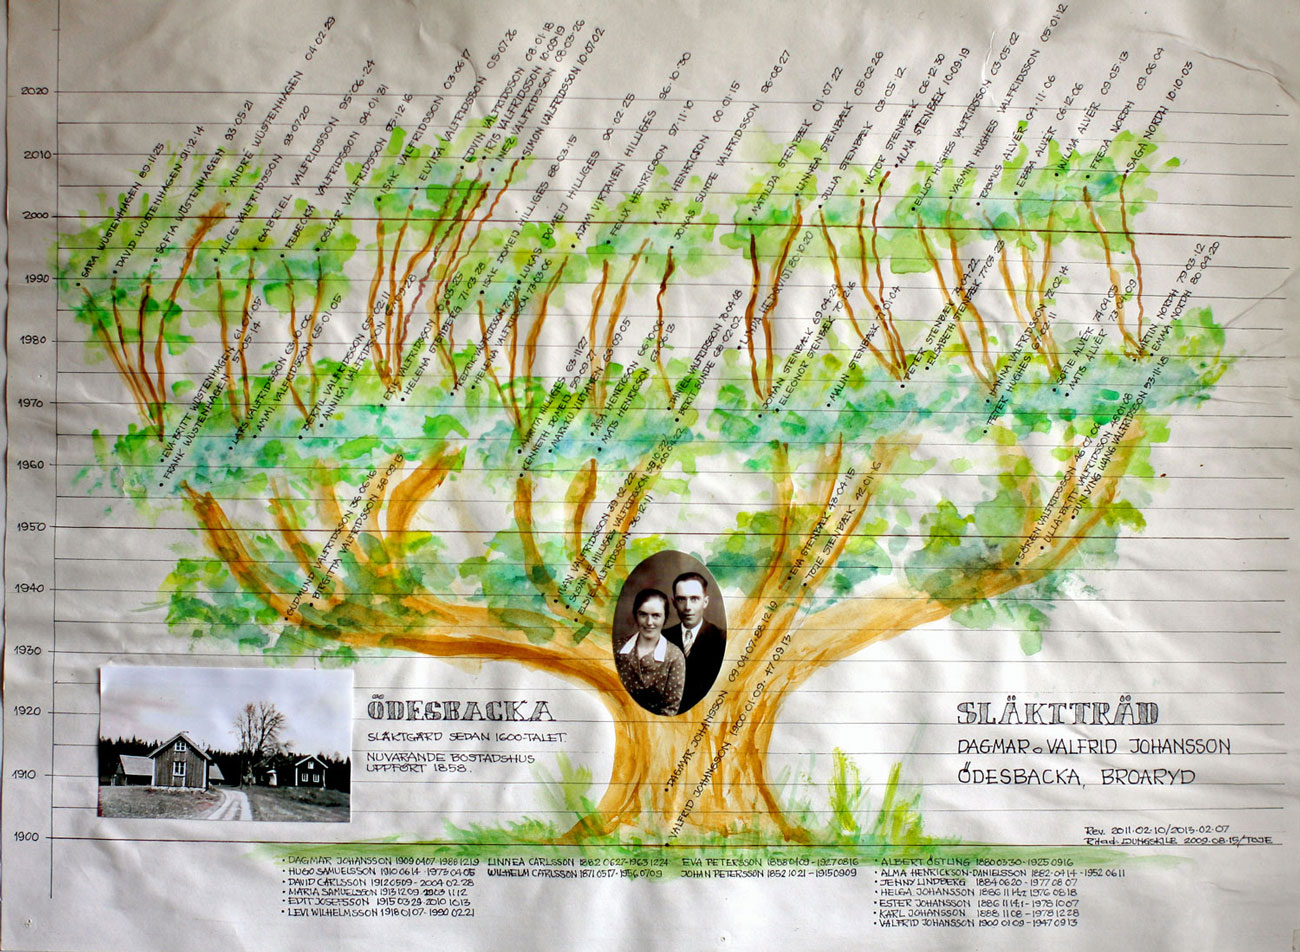 2020
2010
2000
1990
1980
1970
1960
1950
1940
1930
1920
1910
1900
SARA WÜSTENHAGEN 89·11·23
DAVID WÜSTENHAGEN 91·12·14
SOFIA WÜSTENHAGEN 93·05·21
ANDRÉ WÜSTENHAGEN 04·02·29
ALICE VALFRIDSSON 93·07·20
GABRIEL VALFRIDSSON 95·06·24
REBECCA VALFRIDSSON 94·01·31
OSCAR VALFRIDSSON 95·12·16
ISAK VALFRIDSSON 03·06·17
ELVIRA VALFRIDSSON 05·07·26
EDVIN VALFRIDSSON 08·01·18
IRIS VALFRIDSSON 10·09·19
INEZ VALFRIDSSON 08·03·26
SIMON VALFRIDSSON 10·07·02
ISAK DOMEIJ HILLIGES 88·03·15
LUKAS DOMEIJ HILLIGES 90·02·25
ADAM VIRTAVEN HILLIGES 96·10·30
FELIX HENRICSON 97·11·10
MAX HENRICSON 00·01·15
JONAS SUNDE VALFRIDSSON 96·08·27
MATILDA STENBÆK 01·07·22
LINNEA STENBÆK 05·02·26
JULIA STENBÆK 03·05·12
VIKTOR STENBÆK 06·12·30
ALMA STENBÆK 10·09·19
ELLIOT HUGHES VALFRIDSSON 03·05·02
YASMIN HUGHES VALFRIDSSON 05·01·12
RASMUS ALVÉR 04·11·06
EBBA ALVÉR 06·12·06
WILMA ALVÉR 09·05·13
TEEJA NORPH 09·06·04
SAGA NORPH 10·10·03
EVA-BRITT WÜSTENHAGEN 61·07·05
FRANK WÜSTENHAGEN 57·05·14
LARS VALFRIDSSON 63·06·06
AMMI VALFRIDSSON 65·01·05
HELENE STENBERG 71·03·28
ANITA HILLIGES 63·11·27
KENNETH DOMEIJ
MARKKU VIRTANEN
ÅSA HENRICSON
MATS HENRICSON
DANIEL VALFRIDSSON 70·04·08
BERIT SUNDE 68·02·02
JOHAN STENBÆK 69·04·24
ELEONOR STENBÆK 70·12·16
MALIN STENBÆK
PETER STENBÆK
ELISABETH STENBÆK 77·03·23
ANNA VALFRIDSSON 72·02·14
PETER HUGHES
SOFIE ALVÉR 74·04·05
MATS ALVÉR
MARTIN NORPH 79·03·12
EMMA NORPH 80·04·20
GUDMUND VALFRIDSSON 36·06·16
BIRGITTA VALFRIDSSON 38·09·13
VIVAN VALFRIDSSON 39·02·22
SUSANNE HILLIGES VALFRIDSSON
ELSIE VALFRIDSSON 36·12·11
EVA STENBÆK 43·04·15
TOJE STENBÆK 42·01·16
SÖREN VALFRIDSSON
ULLA-BRITT VALFRIDSSON 45·01·08
JUN YING WANG VALFRIDSSON 53·11·18
DAGMAR JOHANSSON 09·04·07-88·12·19
VALFRID JOHANSSON 1900·01·09-47·09·13
ÖDESBACKA
SLÄKTGÅRD SEDAN 1600-TALET
NUVARANDE BOSTADSHUS
UPPFÖRT 1858.
SLÄKTTRÄD
DAGMAR o. VALFRID JOHANSSON
ÖDESBACKA, BROARYD
Rev. 2011·02·10/2013·02·07
Ritad: LJUNGSKILE 2009·08·15/TOJE
• DAGMAR JOHANSSON 1909 04 07-1988 12 19
• HUGO SAMUELSSON 1910 06 14-1973 04 05
• DAVID CARLSSON 1912 05 09-2004·02·28
• MARIA SAMUELSSON 1913 12 09-2003 11 12
• EDIT JOSEFSSON 1915 03 29-2010 10 13
• LEVI WILHELMSSON 1918 01 07-1990 02 21
LINNEA CARLSSON 1882 06 27-1963 12 24
WILHELM CARLSSON 1871 05 17-1956 07 09
EVA PETERSSON 1858 04 09-1927 08 16
JOHAN PETERSSON 1852 10 21-1915 09 09
• ALBERT ÖSTLING 1880 03 30-1925 09 16
• ALMA HENRICKSON-DANIELSSON 1882·04·14-1952 06 11
• JENNY LINDBERG 1884 06 20-1977 08 07
• HELGA JOHANSSON 1886 11 14½ 1976 08 18
• ESTER JOHANSSON 1886 11 14½-1978 10 07
• KARL JOHANSSON 1888 11 08-1978 12 28
• VALFRID JOHANSSON 1900 01 09-1947 09 13